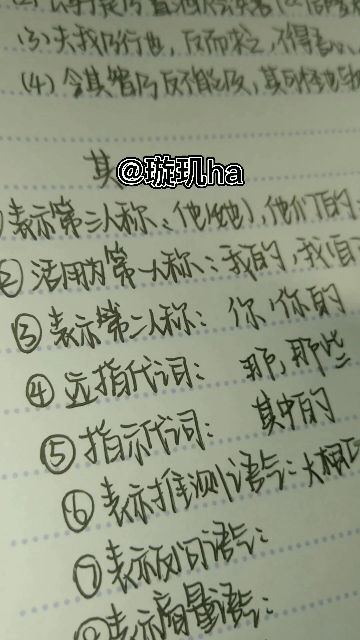 (3) 夫我乃行之，反而求之，不得吾
(4) 今其智乃反不能及，其可怪也
其
@璇玑ha
表示第三人称：他(她)，他们的
② 活用为第一人称：我的，我自
③ 表示第二人称：你，你的
④ 远指代词：那，那些
⑤ 指示代词：其中的
⑥ 表示推测语气：大概
⑦ 表示反问语气：
表示商量语气：